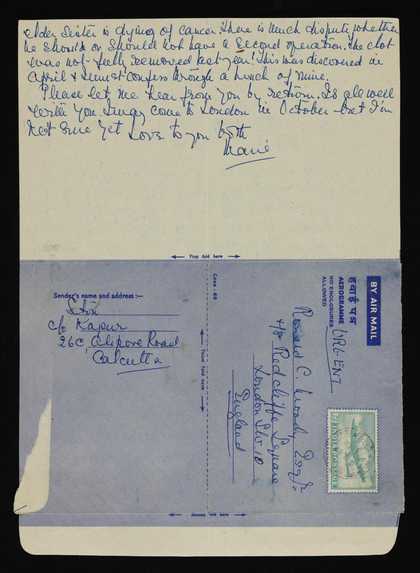 elder Sister is dying of cancer. There is much dispute whether
he should or should not have a second operation. The clot
was not fully removed last year! This was discovered in
April & I must confess through a hunch of mine.
Please let me hear from you by return. Is all well
with you. I may come to London in October – but I'm
not sure yet Love to you both
Marie
First fold here
Sender's name and address :—
c/o Kapur
26C Alipore Road
Calcutta
Third fold here
BY AIR MAIL
हवाई पत्र
AEROGRAMME
NO ENCLOSURES
ALLOWED
URGENT
Ronald C. Esq Jr
Redcliffe Square
London SW 10
England
Second fold here